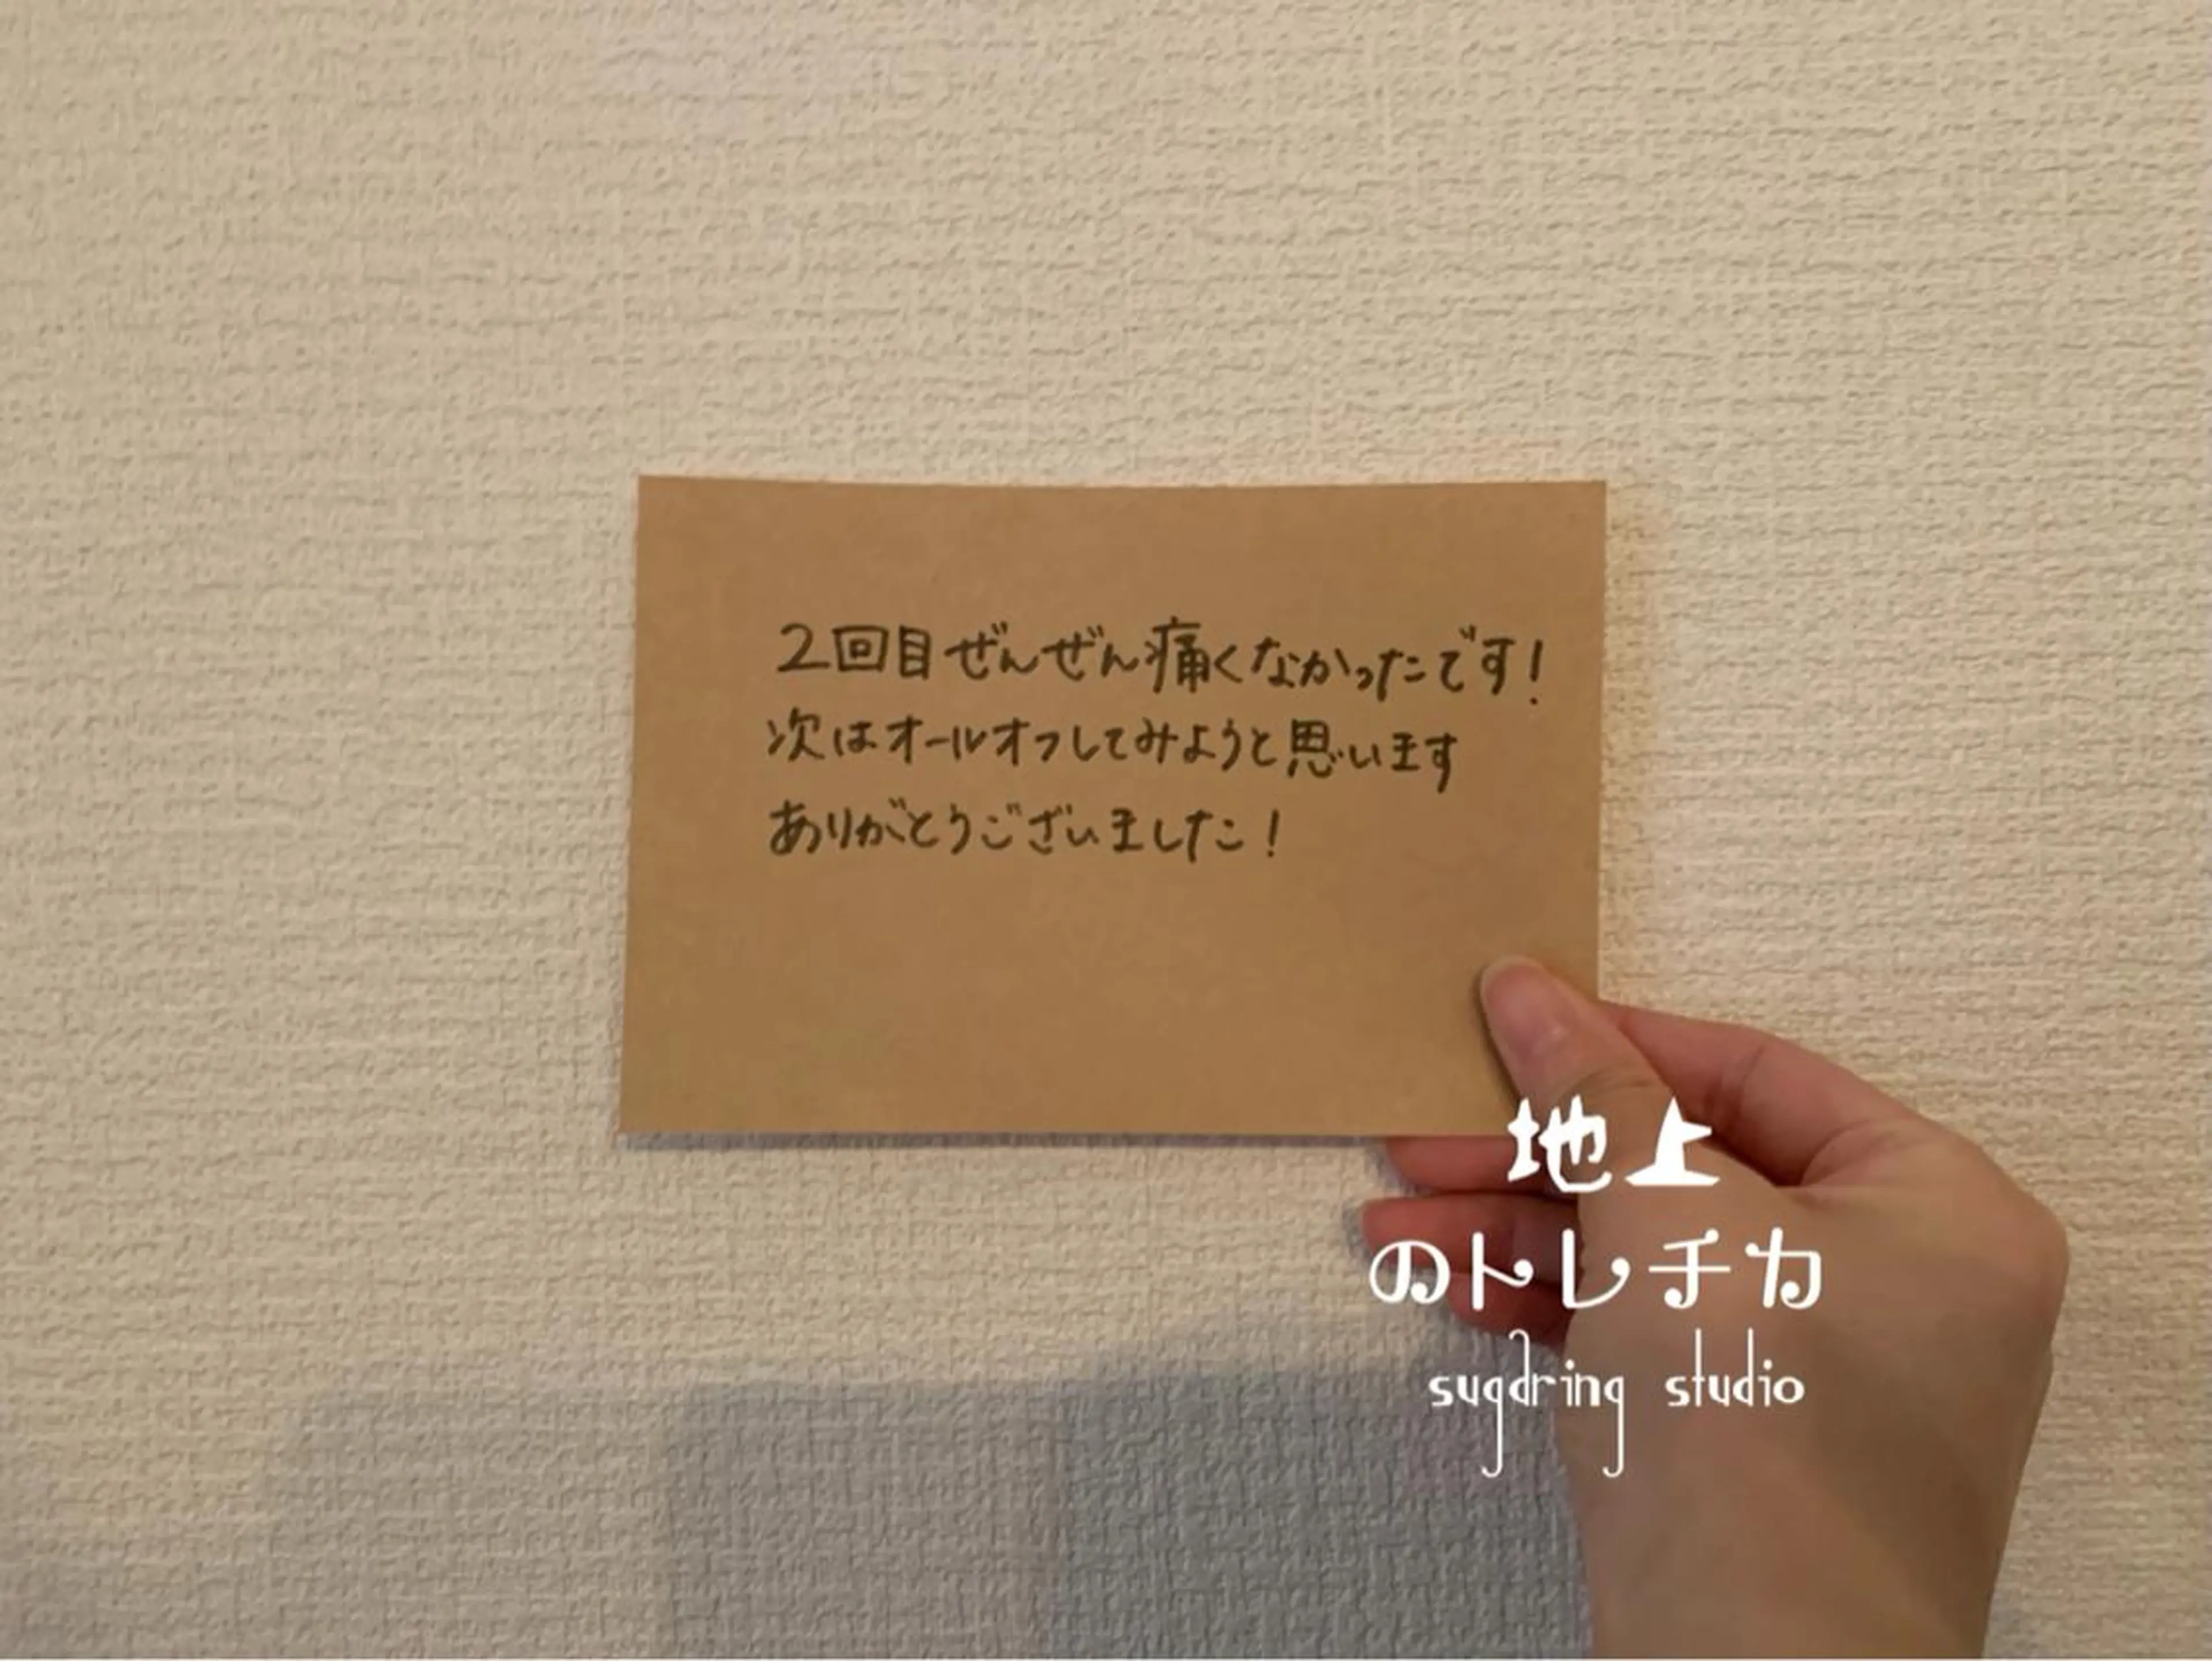 2回目ぜんぜん痛くなかったです!
次はオールオフしてみようと思います
ありがとうございました!
地上
のトレチカ
sugdring studio